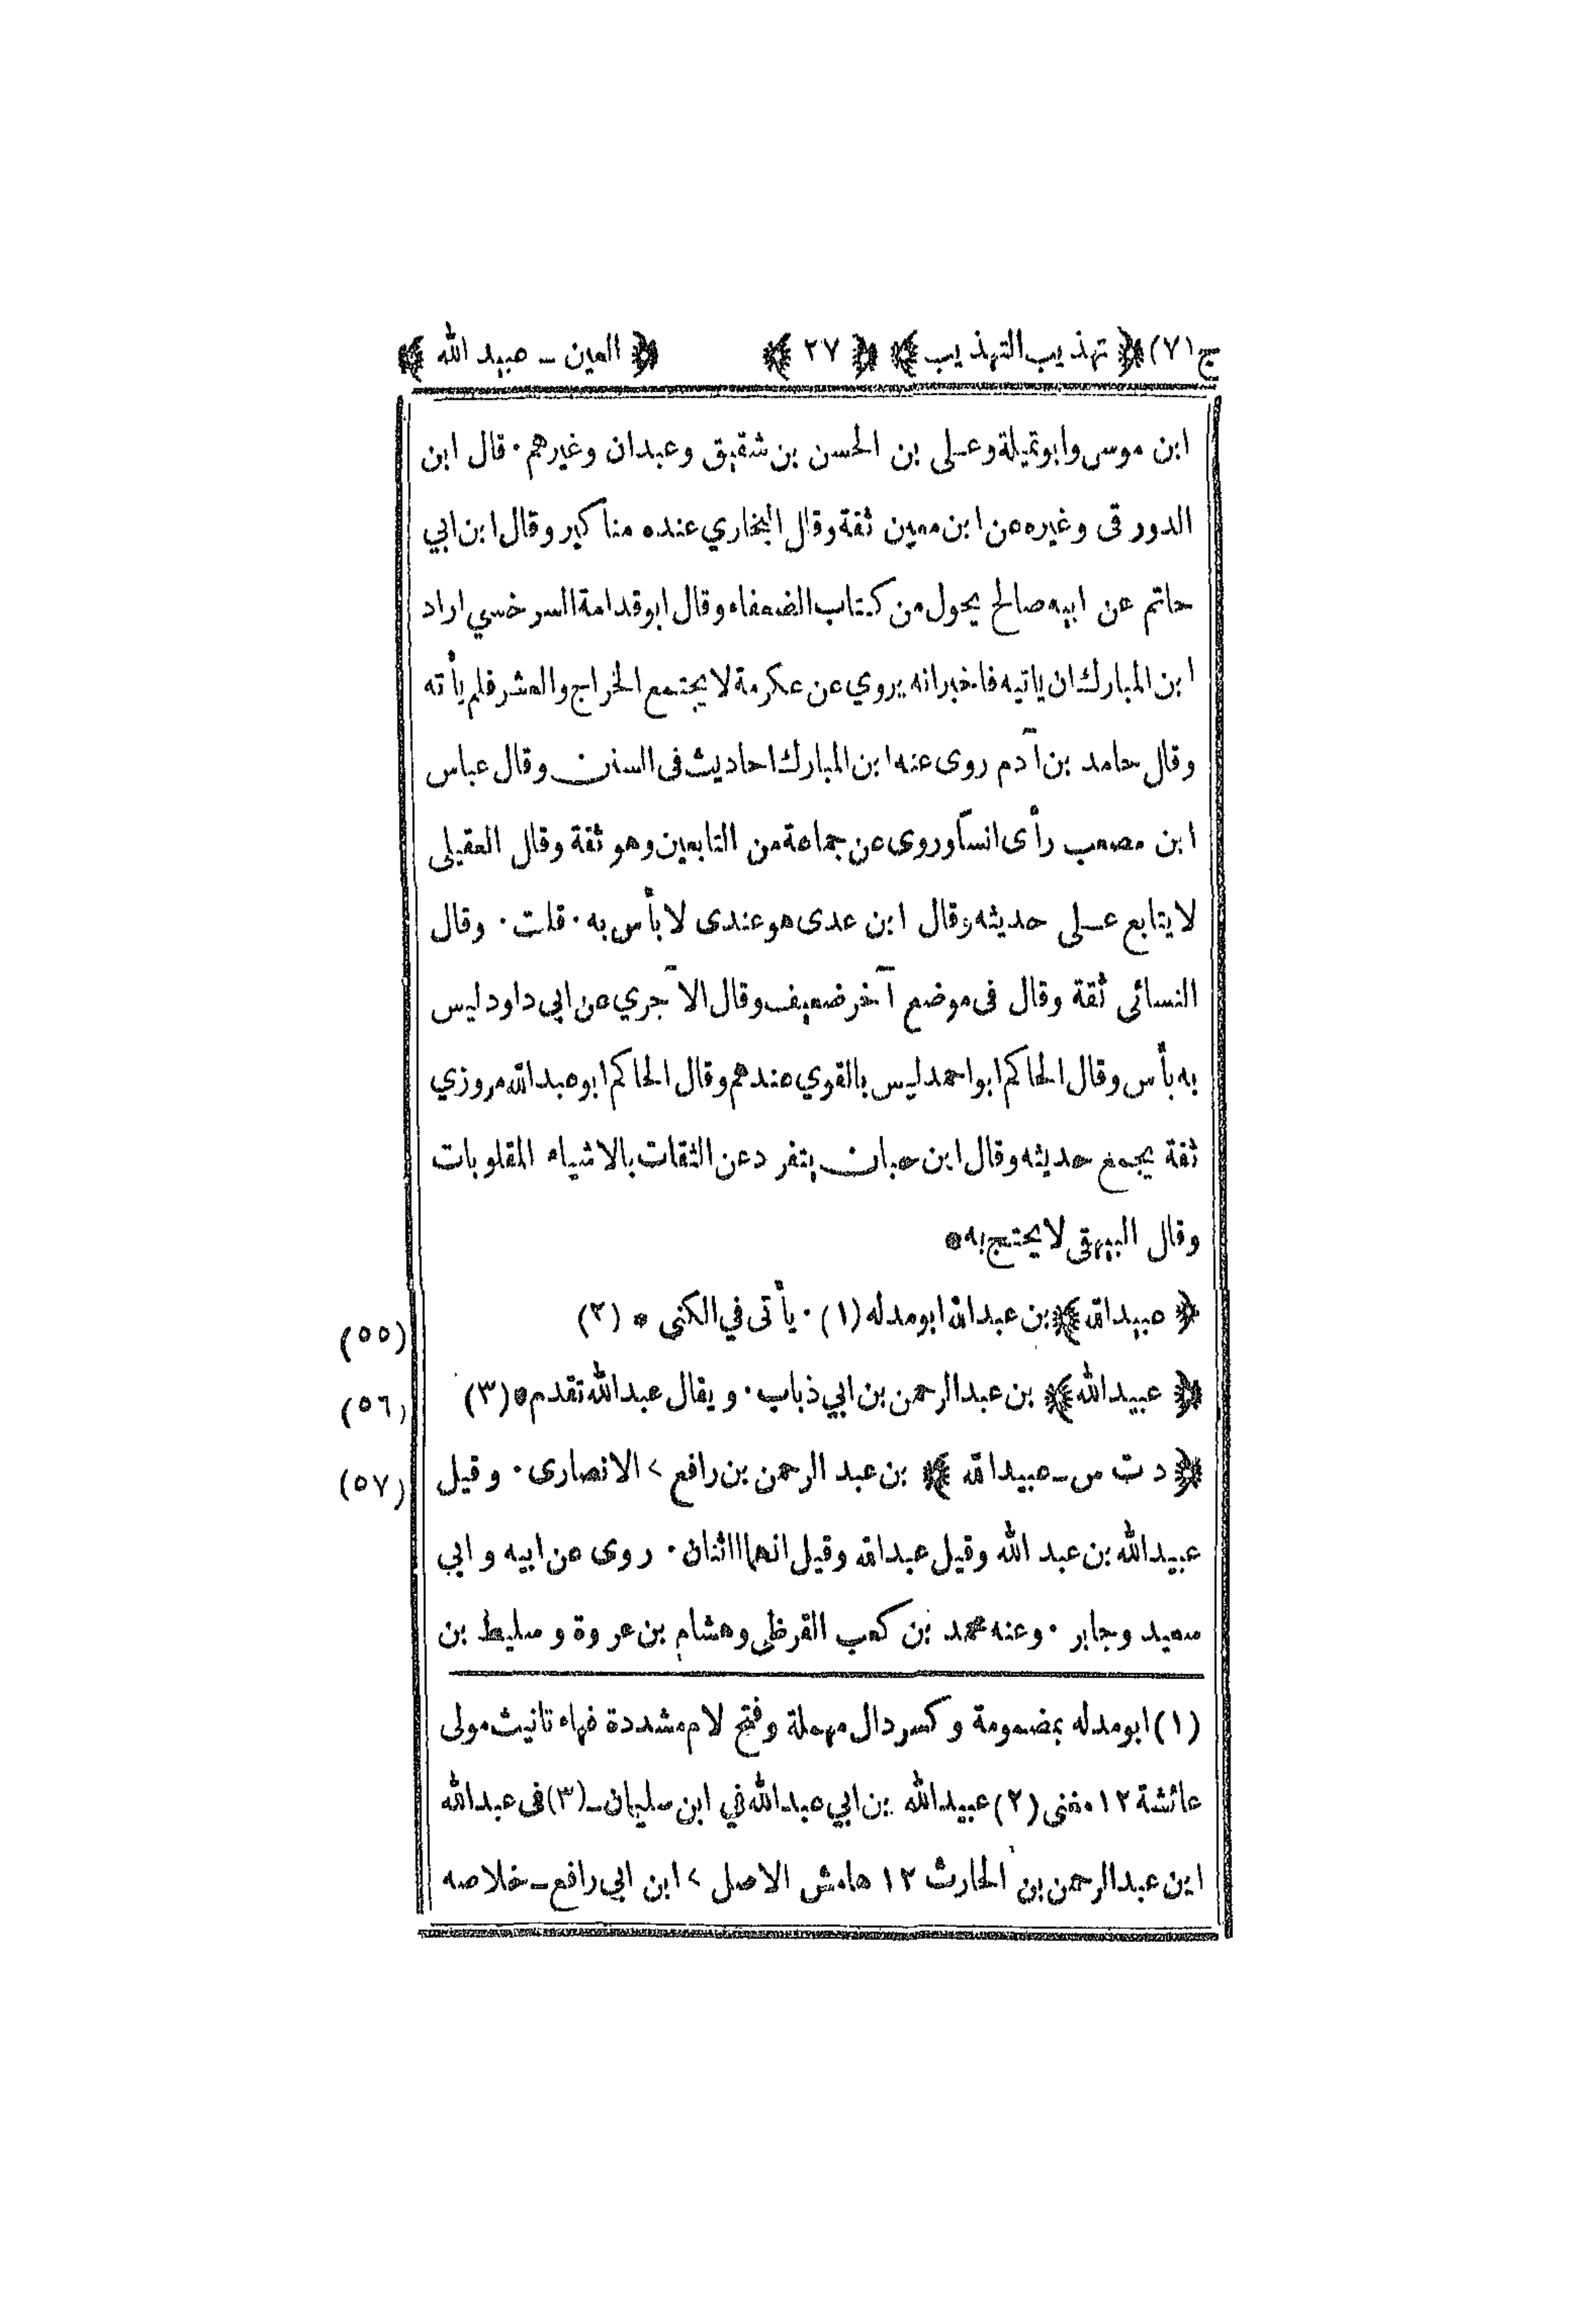 ج (٧) ﴿ تهذيب التهذيب ﴾ ﴿ ٢٧ ﴾ ﴿ العين ـ عبيد الله ﴾
ابن موسى وابوتميلة وعلى بن الحسن بن شقيق وعبدان وغيرهم ٠ قال ابن
الدورقى وغيره عن ابن معين ثقة وقال البخاري عنده مناكير وقال ابن ابي
حاتم عن ابيه صالح يحول من كتاب الضعفاء وقال ابوقدامة السرخسي اراد
ابن المبارك ان ياتيه فاخبر انه يروي عن عكرمة لا يجتمع الخراج والعشر فلم يأته
وقال حامد بن آدم روى عنه ابن المبارك احاديث فى السنن وقال عباس
ابن مصعب رأى انسا وروى عن جماعة من التابعين وهو ثقة وقال العقيلى
لا يتابع على حديثه وقال ابن عدى هو عندى لا بأس به ٠ قلت ٠ وقال
النسائى ثقة وقال فى موضع آخر ضعيف وقال الآجري عن ابى داود ليس
به بأس وقال الحاكم ابو احمد ليس بالقوي عندهم وقال الحاكم ابو عبد الله مروزي
ثقة يجمع حديثه وقال ابن حبان يتفرد عن الثقات بالاشياء المقلوبات
وقال البيهقى لا يحتج به *
﴿ عبيد الله ﴾ بن عبد الله ابو مدله (١) ٠ يأتى في الكنى * (٢) (٥٥)
﴿ عبيد الله ﴾ بن عبد الرحمن بن ابي ذباب ٠ ويقال عبد الله تقدم * (٣) (٥٦)
﴿ د ت س ـ عبيد الله ﴾ بن عبد الرحمن بن رافع > الانصارى ٠ وقيل (٥٧)
عبيد الله بن عبد الله وقيل عبد الله وقيل انهما اثنان ٠ روى عن ابيه وابي
سعيد وجابر ٠ وعنه محمد بن كعب القرظى وهشام بن عروة وسليط بن
(١) ابومدله بمضمومة وكسر دال مهملة وفتح لام مشددة فهاء تانيث مولى
عائشة ١٢ مغنى (٢) عبيد الله بن ابي عبد الله في ابن سليمان ـ (٣) فى عبد الله
ابن عبد الرحمن بن الحارث ١٢ هامش الاصل > ابن ابي رافع ـ خلاصه